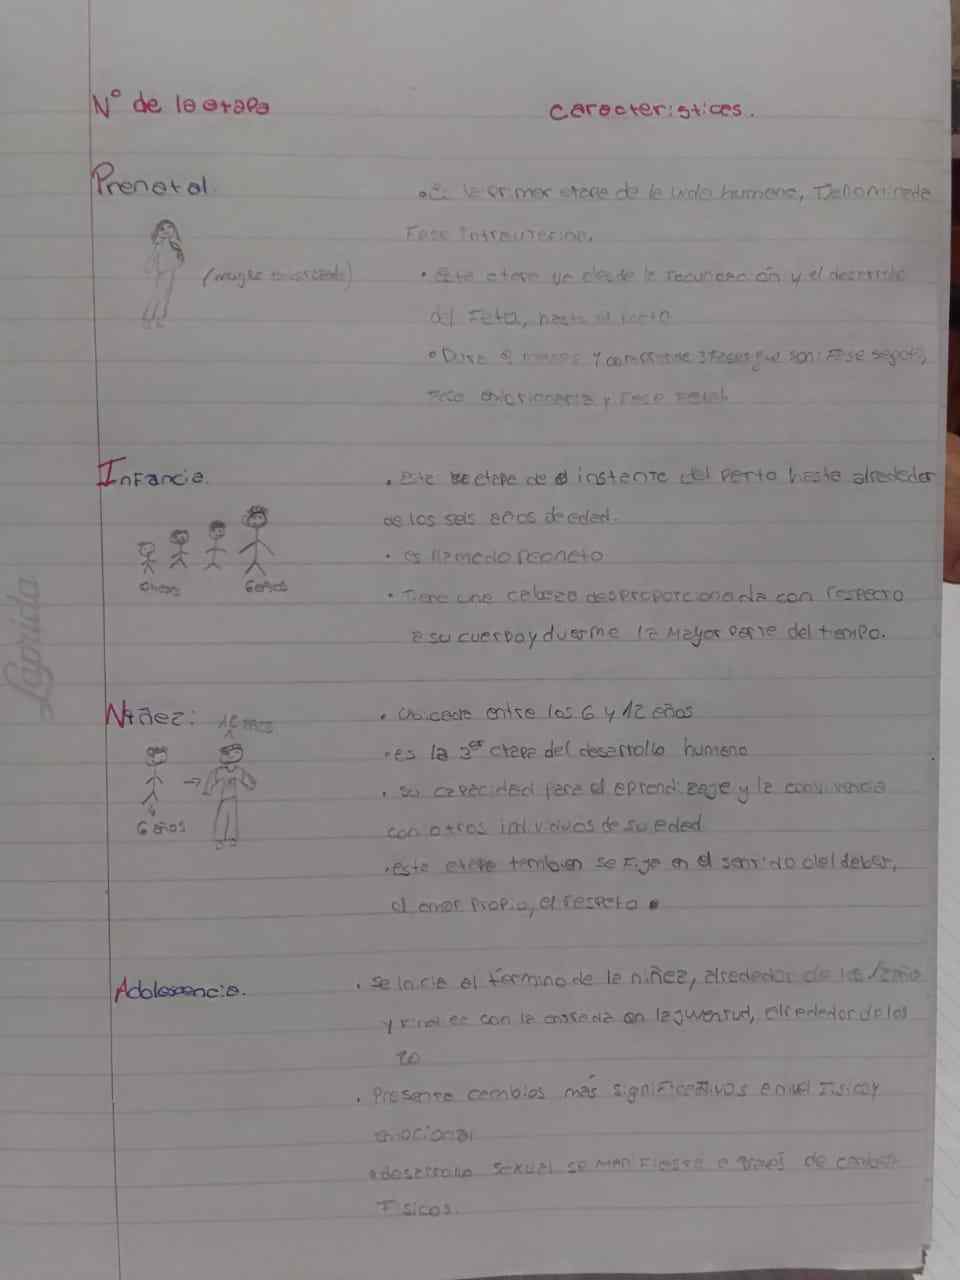 N° de la etapa
Caracteristicas.
Prenatal.
(mujer embarazada)
• Es la primer etapa de la vida humana, Denominada
Fase Intrauterina.
• Esta etapa va desde la fecundación y el desarrollo
del Feto, hasta el parto
• Dura 9 meses y comprende 3 fases que son: Fase
Fase embrionaria y Fase Fetal.
Infancia.
6 años
• Esta etapa de el instante del parto hasta alrededor
de los seis años de edad.
• es llamado neonato
• Tiene una cabeza desproporcionada con respecto
a su cuerpo y duerme la mayor parte del tiempo.
Niñez:
6 años
• entre los 6 y 12 años
• es la 3er etapa del desarrollo humano
• su capacidad para el aprendizaje y la convivencia
con otros individuos de su edad
• esta etapa tambien se fija en el sentido del deber,
el amor propio, el respeto •
Adolescencia.
• se inicia al término de la niñez, alrededor de los 12 año
y con la entrada en la juventud, alrededor de los
20
• Presenta cambios más significativos e nivel fisico y
emocional
• desarrollo sexual se manifiesta a través de cambios
Fisicos.
Laprida